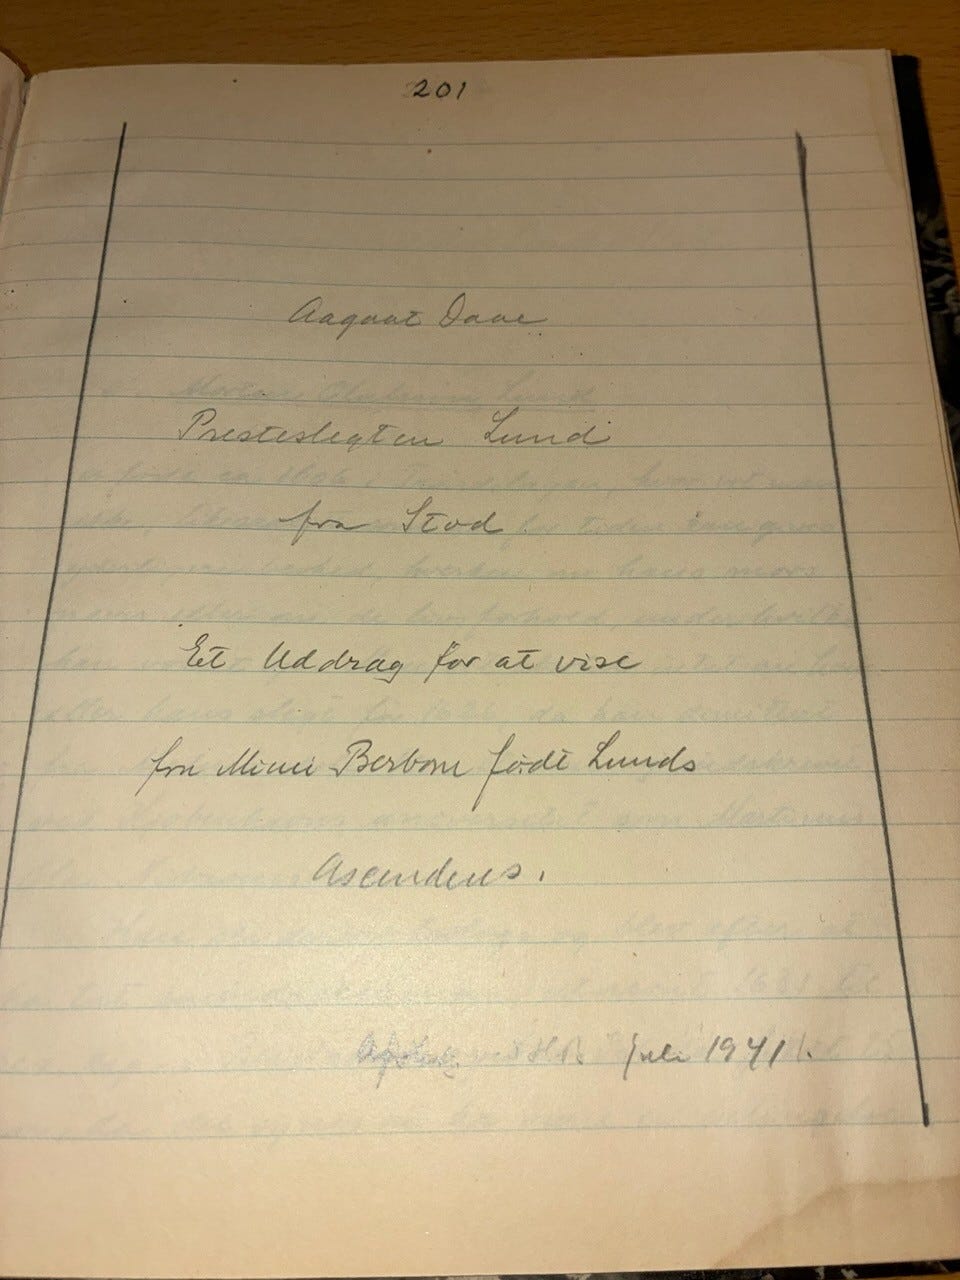 201
Aagaat Daae
Presteslegten Lund
fra Stod
Et Uddrag for at vise
fru Mimi Berbom født Lunds
Ascendens.
Juli 1941.